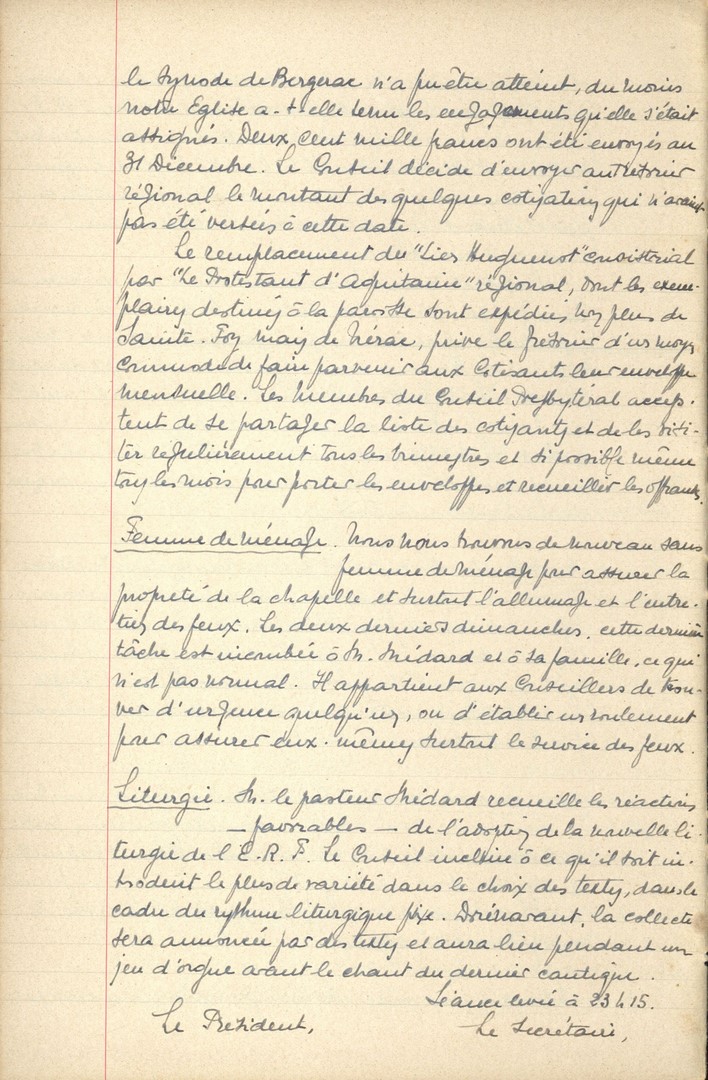 le Synode de Bergerac n'a pu être atteint, du moins
notre Eglise a-t-elle tenu les engagements qu'elle s'était
assignés. Deux cent mille francs ont été envoyés au
31 Décembre. Le Conseil décide d'envoyer au trésorier
régional le montant des quelques cotisations qui n'avaient
pas été versées à cette date.
Le remplacement du "Lien Huguenot" consistorial
par "Le Protestant d'Aquitaine" régional, dont les exem-
plaires destinés à la paroisse sont expédiés non plus de
Sainte-Foy mais de Nérac, prive le trésorier d'un moyen
commode de faire parvenir aux cotisants leur enveloppe
mensuelle. Les membres du Conseil Presbytéral accep-
tent de se partager la liste des cotisants et de les visi-
ter régulièrement tous les trimestres et si possible même
tous les mois pour porter les enveloppes et recueillir les offrandes.
Femme de ménage. Nous nous trouvons de nouveau sans
femme de ménage pour assurer la
propreté de la chapelle et surtout l'allumage et l'entre-
tien des feux. Les deux derniers dimanches, cette dernière
tâche est incombée à M. Médard et à sa famille, ce qui
n'est pas normal. Il appartient aux Conseillers de trou-
ver d'urgence quelqu'un, ou d'établir un roulement
pour assurer eux-mêmes surtout le service des feux.
Liturgie. M. le pasteur Médard recueille les réactions
— favorables — de l'adoption de la nouvelle li-
turgie de l'E.R.F. Le Conseil incline à ce qu'il soit in-
troduit le plus de variété dans le choix des textes, dans le
cadre du rythme liturgique fixe. Dorénavant, la collecte
sera annoncée par des textes et aura lieu pendant un
jeu d'orgue avant le chant du dernier cantique.
Séance levée à 23 h 15.
Le Président,
Le Secrétaire,